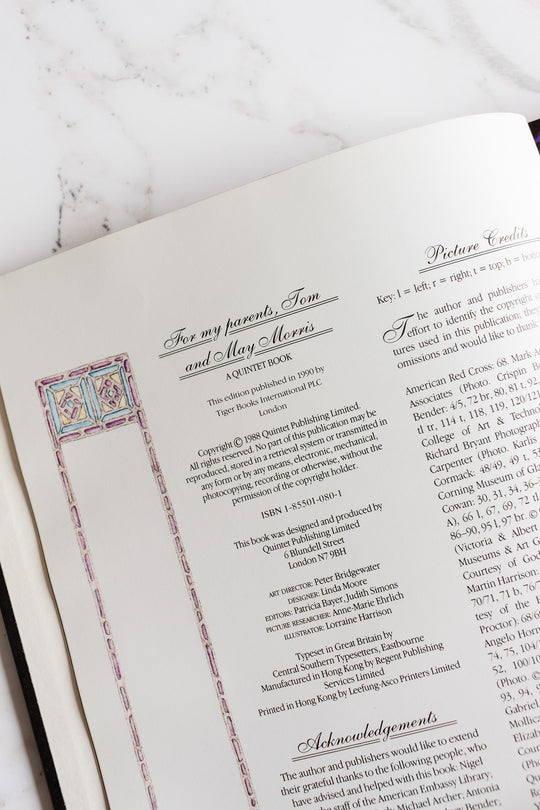 For my parents, Tom
and May Morris
A QUINTET BOOK
This edition published in 1990 by
Tiger Books International PLC
London
Copyright © 1988 Quintet Publishing Limited.
All rights reserved. No part of this publication may be
reproduced, stored in a retrieval system or transmitted in
any form or by any means, electronic, mechanical,
photocopying, recording or otherwise, without the
permission of the copyright holder.
ISBN 1-85501-080-1
This book was designed and produced by
Quintet Publishing Limited
6 Blundell Street
London N7 9BH
ART DIRECTOR: Peter Bridgewater
DESIGNER: Linda Moore
EDITORS: Patricia Bayer, Judith Simons
PICTURE RESEARCHER: Anne-Marie Ehrlich
ILLUSTRATOR: Lorraine Harrison
Typeset in Great Britain by
Central Southern Typesetters, Eastbourne
Manufactured in Hong Kong by Regent Publishing
Services Limited
Printed in Hong Kong by Leefung-Asco Printers Limited
Acknowledgements
The author and publishers would like to extend
their grateful thanks to the following people, who
have advised and helped with this book. Nigel
staff of the American Embassy Library;
Michael Archer; Antonia
Picture Credits
Key: l = left; r = right; t = top; b =
The author and publishers
effort to identify the copyright
tures used in this publication; they
omissions and would like to thank
American Red Cross: 68. Mark
Associates (Photo. Crispin
Bender: 4/5, 72 br, 80, 81 t, 92,
tl tr, 114 t, 118, 119, 120/121
College of Art &
Richard Bryant
Carpenter (Photo. Karlis
Cormack: 48/49, 49 t,
Corning Museum of
Cowan: 30, 31, 34,
A), 66 l, 67, 69, 72
86–90, 95 t, 97 br. ©
(Victoria & Albert
Museums & Art
Courtesy of God
Martin Harrison:
70/71, 71 b, 76/
tesy of the
Proctor). 68/
Angelo
74, 75, 104/
52, 100/
(Photo. ©
93, 94,
Gabriel
Mollica
(Ph